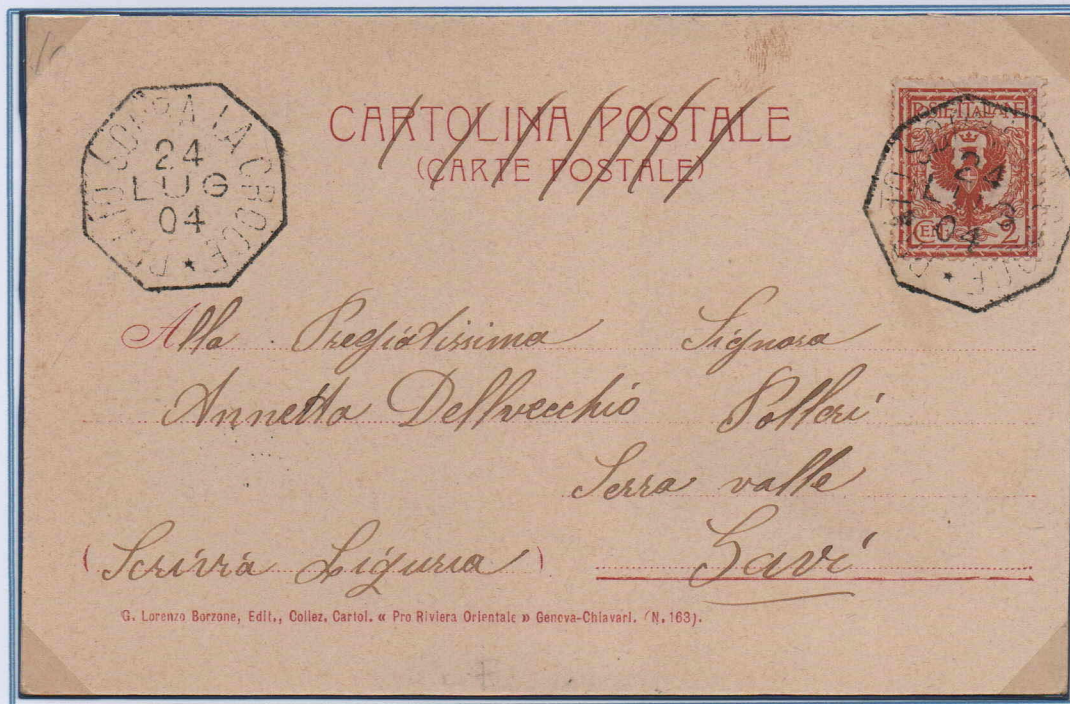 CARTOLINA POSTALE
(CARTE POSTALE)
PRATO SOPRA LA CROCE
24
LUG
04
POSTE ITALIANE
CENT 2
PRATO SOPRA LA CROCE
24
LUG
04
Alla Pregiatissima Signora
Annetta Dellvecchio Polleri
Serra valle
(Scrivia Liguria) Gavi
G. Lorenzo Borzone, Edit., Collez. Cartol. « Pro Riviera Orientale » Genova-Chiavari. (N. 163).